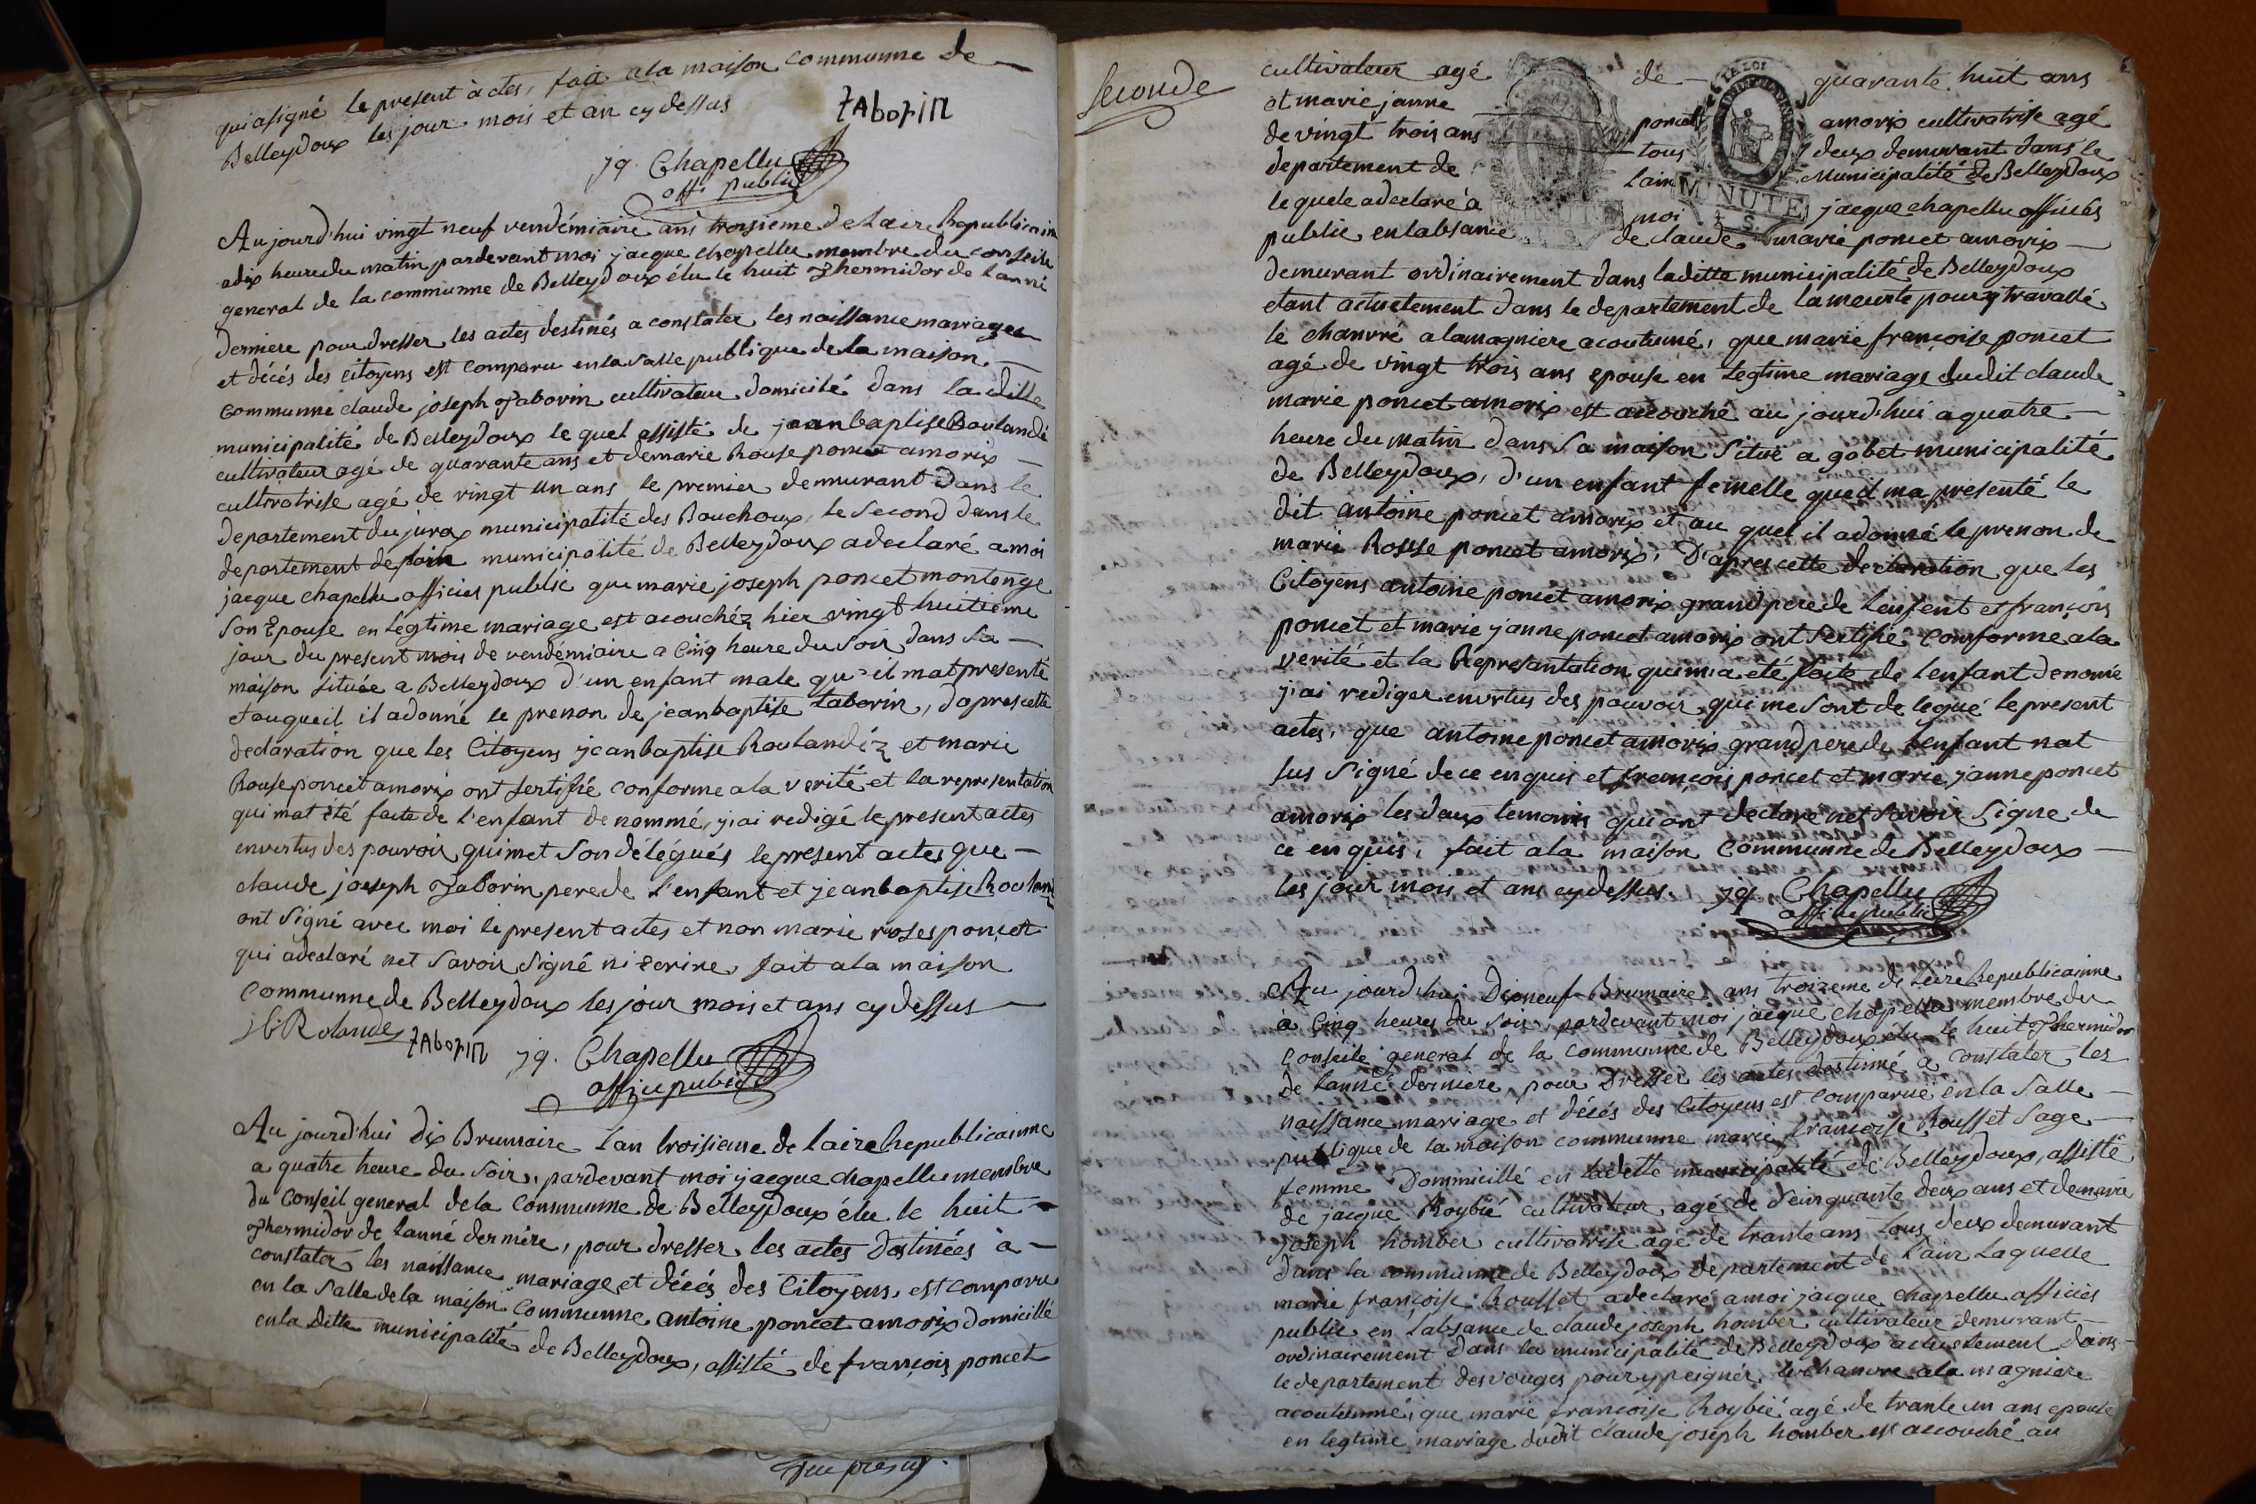 qui asigné le present actes, fait ala maison communne de
Belleydoux les jour mois et an cy dessus
tAboriN
jq. Chapellu
offi public
Aujourd'hui vingt neuf vendémiaire ans troisieme de laire Republicaine
adix heure du matin pardevant moi jacque chapellu membre du conseile
general de la communne de Belleydoux élu le huit Thermidor de lanné
derniere pour dresser les actes destinés a constater les naissance mariages
et décés des citoyens est comparu en la salle publique de la maison
communne claude joseph Taborin cultivateur domicilé dans la ditte
municipalité de Belleydoux le quel assisté de jean baptise Roulandé
cultivateur agé de quarante ans et de marie Rouse poncet amorix
cultivatrise agé de vingt un ans le premier demurant dans le
departement du jurax municipalité des Bouchoux, le second dans le
departement de lain municipalité de Belleydoux adeclaré a moi
jacque chapellu officier public que marie joseph poncet montange
son Epouse en legtime mariage est acouchéz hier vingt huitieme
jour du present mois de vendemiaire a Cinq heure du soir dans sa
maison située a Belleydoux d'un enfant male qu'il mat presenté
et auqueil il adonné le prenon de jean baptise taborin, dapres cette
declaration que les Citoyens jean baptise Roulandéz et marie
Rouse poncet amorix ont sertifié conforme ala verité et la representation
qui mat été faite de l'enfant denommé, j'ai redigé le present actes
envertus des pouvoir qui met son délégués le present actes que
claude joseph Taborin pere de l'enfant et jean baptise Roulandé
ont signé avec moi le present actes et non marie roses poncet
qui adeclaré net savoir signé ni Ecrire, fait ala maison
communne de Belleydoux les jour mois et ans cy dessus
JB Rolandez tAboriN jq. Chapellu
officie public
Au jourd'hui dix Brumaire lan troisieme de laire Republicainne
a quatre heure du soir, pardevant moi jacque chapellu membre
du Conseil general de la Communne de Belleydoux élu le huit
Thermidor de lanné derniére, pour dresser les actes destinées à
constater les naissance mariage et décés des Citoyens, est comparu
en la salle de la maison communne antoine poncet amorix domicillé
en la ditte municipalité de Belleydoux, assisté de françois poncet
seconde
cultivateur agé de quarante huit ans
et marie janne poncet amorix cultivatrise agé
de vingt trois ans tous deux demurant dans le
departement de lain Municipalité de Belleydoux
le quele adeclaré à moi jacque chapellu officiés
public en labsance de claude marie poncet amorix
LA LOI
MINUTE
MINUTE
demurant ordinairement dans laditte municipalité de Belleydoux
etant actuelement dans le departement de la meurte pour y travallé
le chanvré a la magniere acoutumé, que marie francoise poncet
agé de vingt trois ans epouse en Legtime mariage dudit claude
marie poncet amorix est acouché au jourd'hui a quatre
heure du matin dans sa maison situé a gobet municipalité
de Belleydoux, d'un enfant femelle qued ma presenté le
dit antoine poncet amorix et au quel il adonné le prenon de
marie Rosse poncet amorix, D'apres cette declaration que les
Citoyens antoine poncet amorix grand pere de lenfent et françois
poncet et marie janne poncet amorix ont sertifié conforme ala
verité et la Représantation qui m'a eté faite de lenfant denomé
j'ai rediger envrtus des pouvoir qui me sont de legué le present
actes, que antoine poncet amorix grand pere de lenfant nat
sus signé de ce enquis et françois poncet et marie janne poncet
amorix les deux temoins qui ont declaré net savoir signe de
ce enquis, fait ala maison Communne de Belleydoux
les jour mois et ans cy dessus. jq Chapellu
officie public
Au jourd'hui Dixneuf Brumaire ans troizeme de lere Republicainne
à Cinq heures du soir pardevant moi jacque chapellu membre du
Conseile general de la communne de Belleydoux elu le huit Thermidor
de lanné derniere pour dresser les actes destinné a constater les
naissance mariage et décés des Citoyens est comparue en la salle
publique de la maison communne marie francoise Rousset sage
femme Dommicillé en ladette municipalité de Belleydoux, assisté
de jacque Roybié cultivateur agé de seinquante deux ans et de marie
joseph homber cultivatrise agé de trante ans tous deux demurant
dans la communne de Belleydoux departement de lain Laquelle
marie françoise Rousset adeclaré amoi jacque chapellu officiés
public en l'absance de claude joseph homber cultivateur demurant
ordinairement dans la municipalité de Belleydoux actuelement dans
le departement des vouges pour y peigner le chanvre ala magniere
acoutumé, que marie francoise Roybié agé de trante un ans epouse
en legtime mariage dudit claude joseph homber est acouché au